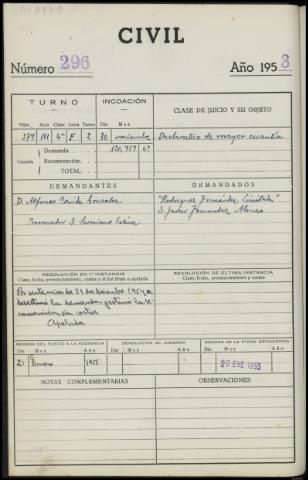 CIVIL
Número 296 Año 1953
TURNO INCOACIÓN CLASE DE JUICIO Y SU OBJETO
Núm. Auto Clase Letra Tarea Día Mes
279 4ª F 2 30 noviembre Declarativo de mayor cuantía
Demanda 120,757 67
Cuantía Reconvención
TOTAL
DEMANDANTES DEMANDADOS
D. Alfonso "Rodriguez Fernández Limitada"
D. Javier Fernandez Alonso
Procurador S. Soriano
RESOLUCIÓN EN 1ª INSTANCIA RESOLUCIÓN DE ÚLTIMA INSTANCIA
Clase, fecha, pronunciamiento, costas y si fué firme o apelada Clase, fecha, pronunciamiento y costas
Por sentencia de 21 de diciembre 1954 se
desestimó la demanda y estimó la re-
convención, sin costas
Apelada
REMESA DEL PLEITO A LA AUDIENCIA DEVOLUCIÓN AL JUZGADO REMESA DE LA FICHA ESTADÍSTICA
Día Mes Año Día Mes Año Día Mes Año
21 Enero 1955 20 ENE 1955
NOTAS COMPLEMENTARIAS OBSERVACIONES